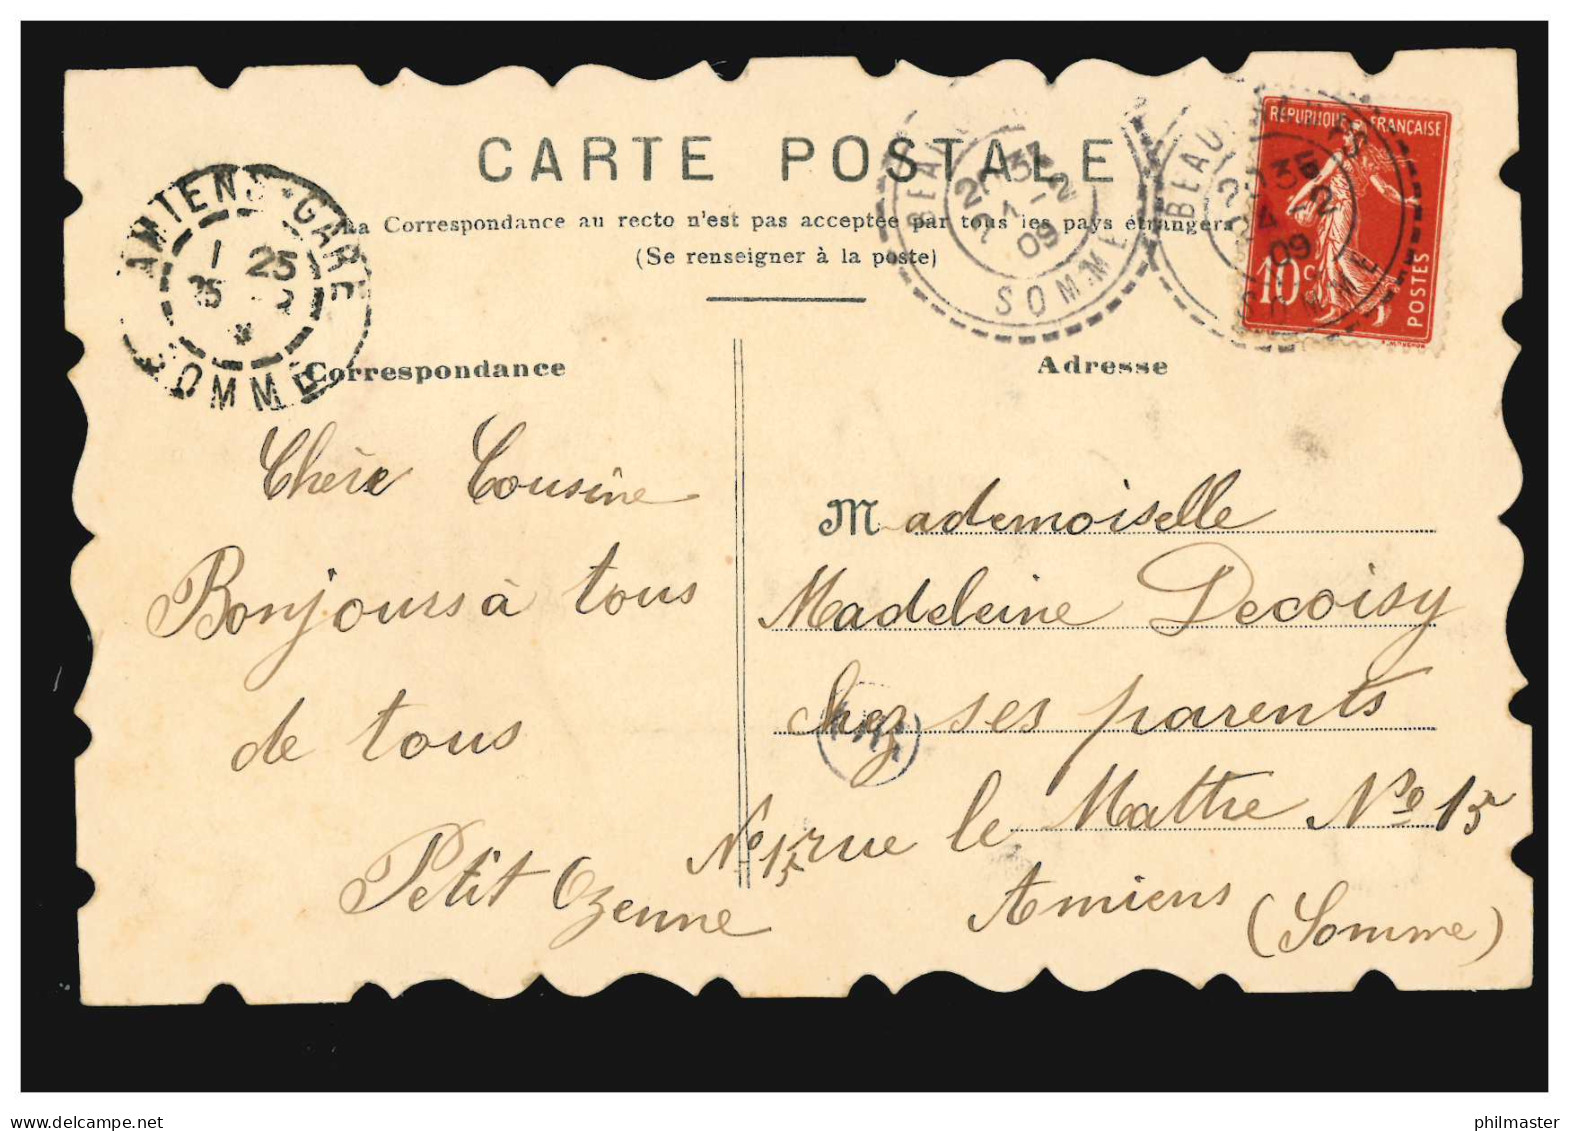 CARTE POSTALE
La Correspondance au recto n'est pas acceptée par tous les pays étrangers
(Se renseigner à la poste)
AMIENS-GARE
1 25
SOMME
SOMME
09
SOMME
09
REPUBLIQUE FRANÇAISE
10c
POSTES
Correspondance
Adresse
Chère Cousine
Bonjours à tous
de tous
Petit Ozenne
Mademoiselle
Madeleine Decoisy
chez ses parents
No 15 rue le Mattre No 15
Amiens (Somme)
philmaster